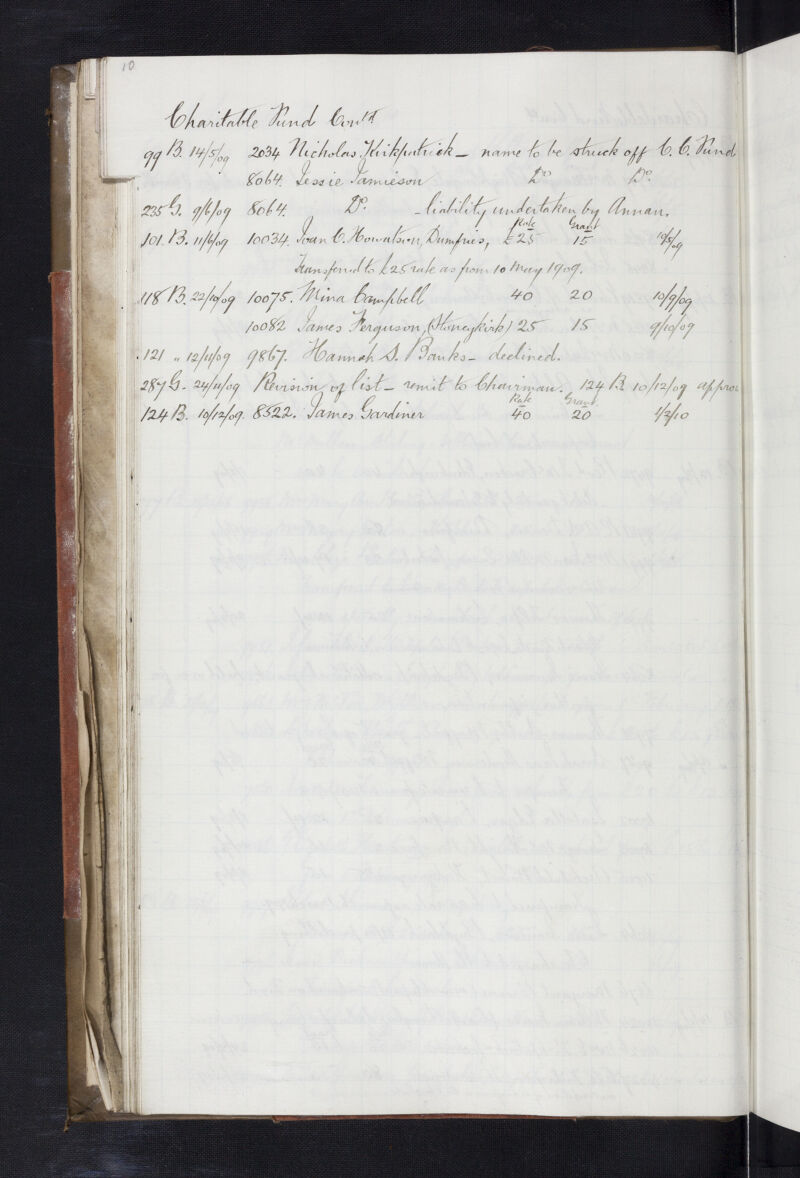 10
Charitable Fund Contd
99 B. 14/5/09 2034 Nicholas Kirkpatrick — name to be struck off C. C. Fund
8064. Jessie Jamieson Do Do.
235 G. 9/6/09 8064. Do. — liability undertaken by Annan.
Rate Grant
101. B. 11/6/09 10034. Joan C. Howatson, Dumfries, £25 15 10/5/09
Transferred to £25 rate as from 10 May 1909.
118 B. 22/10/09 10075. Mina Campbell 40 20 10/9/09
10082 James Ferguson, (Stoneykirk) 25 15 9/10/09
121 " 12/11/09 9867. Hannah S. Banks — declined.
287 G. 24/11/09 Revision of list — remit to Chairman. 124 B. 10/12/09 approv
Rate Grant.
124 B. 10/12/09. 8522. James Gardiner 40 20 1/2/10